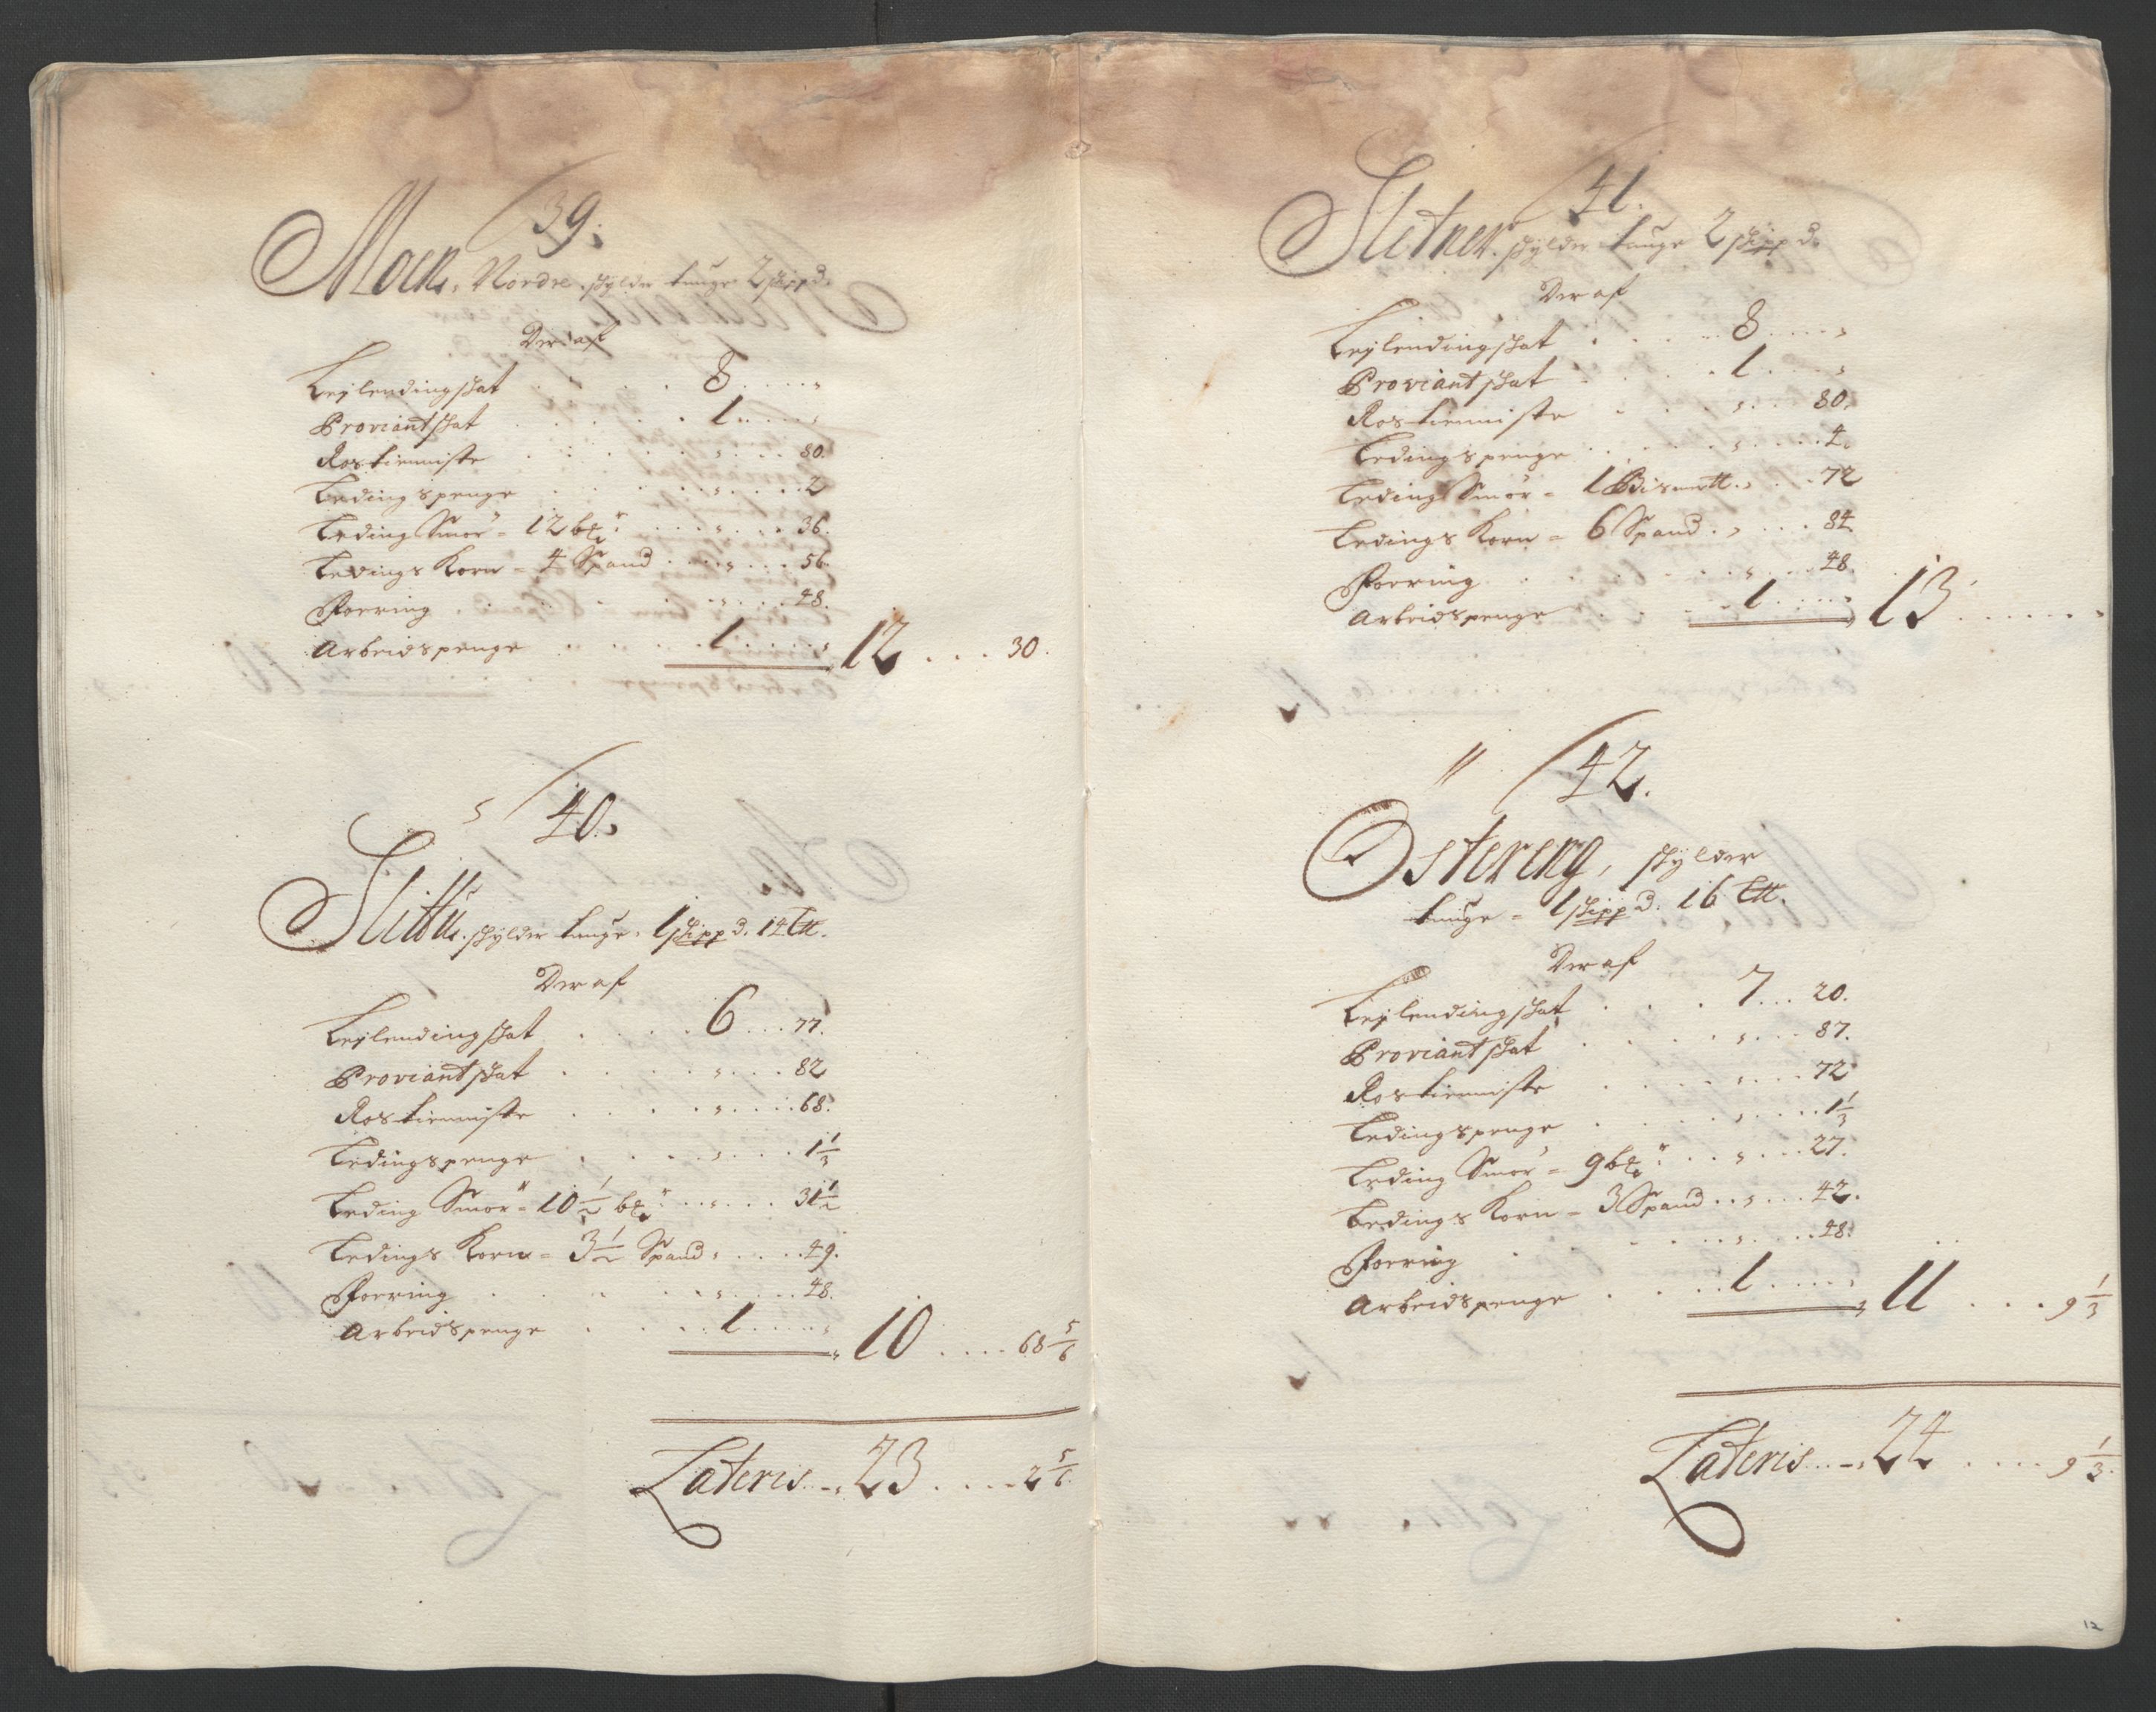 39.
Moen, Nordre. skylder tunge 2 skippd.
Der af
Leylendingskat . . . . 8 . . . . „
Proviantskat . . . . . 1 . . . . „
Rostienniste . . . . . „ . . . 80.
Leding spenge . . . . „ . . . . 2
Leding Smör = 12 bℳr: . . . „ . . . 36.
Ledings Korn = 4 Spand . . . „ . . . 56
Foering . . . . . . „ . . . 48.
Arbeidspenge . . . . . 1 . . . . „ 12 . . . 30.
40.
Slittu. skylder tunge = 1 skippd. 14 L℔.
Der af
Leylendingskat . . . . 6 . . . 77.
Proviantskat . . . . „ . . . 82
Rostienniste . . . . „ . . . . 68.
Ledingspenge . . . . „ . . . 1 1/3
Leding Smör = 10 1/2 bℳr: . . „ . . . 31 1/2
Ledings Korn = 3 1/2 Spand „ . . . . 49.
Foering . . . . . „ . . . . 48.
Arbeidspenge . . . . 1 . . . . „ 10 . . . . 68 5/6
Lateris . . 23 . . . . 2 5/6
41.
Slitner. skylder tunge 2 skippd.
Der af
Leylendingskat . . . . 8 . . . . „
Proviantskat . . . . 1 . . . . „
Rostienniste . . . . „ . . . 80.
Ledingspenge . . . . . „ . . . . 4.
Leding Smör = 1 Bismer℔. „ . . . 72
Ledings Korn = 6 Spand . „ . . . 84.
Foering . . . . . . „ . . . 48.
Arbeidspenge . . . . 1 . . . . „ 13 . . . . . . „
42.
Østereng, skylder
tunge = 1 skippd. 16 L℔.
Der af
Leylendingskat . . . 7 . . . 20.
Proviantskat . . . . „ . . . 87.
Rostienniste . . . . „ . . . . 72
Ledingspenge . . . . „ . . . . 1 1/3
Leding Smör = 9 bℳr: . . „ . . . 27.
Ledings Korn = 3 Spand . . „ . . . 42.
Foering . . . . . „ . . . . 48.
Arbeidspenge . . . . 1 . . . . „ 11 . . . 9 1/3
Lateris . . . 24 . . . . 9 1/3.
12